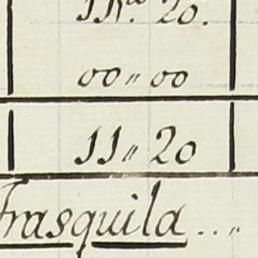 11.ᵈᵒ 20.
00 〃 00
11 〃 20
Frasquila..〃